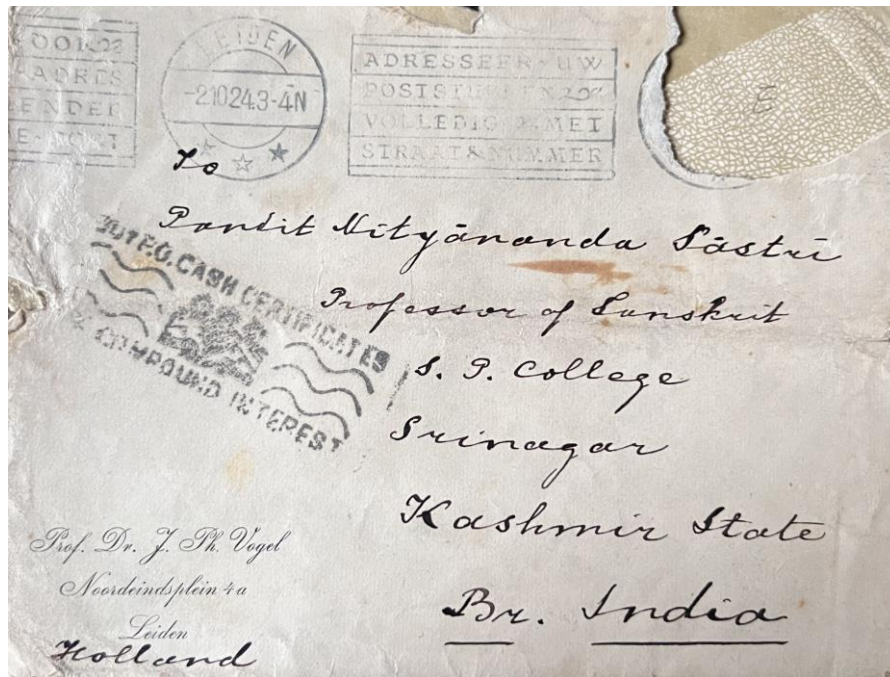 OOK
ADRES
ENDER
LEIDEN
-2.10.24.3-4N
ADRESSEER UW
POSTSTUKKEN
VOLLEDIG MET
STRAAT & NUMMER
E
To
Pandit Nityānanda Sāstrī
Professor of Sanskrit
S. P. College
Srinagar
Kashmir State
Br. India
BUY P.O. CASH CERTIFICATES
COMPOUND INTEREST
Prof. Dr. J. Ph. Vogel
Noordeindsplein 4a
Leiden
Holland